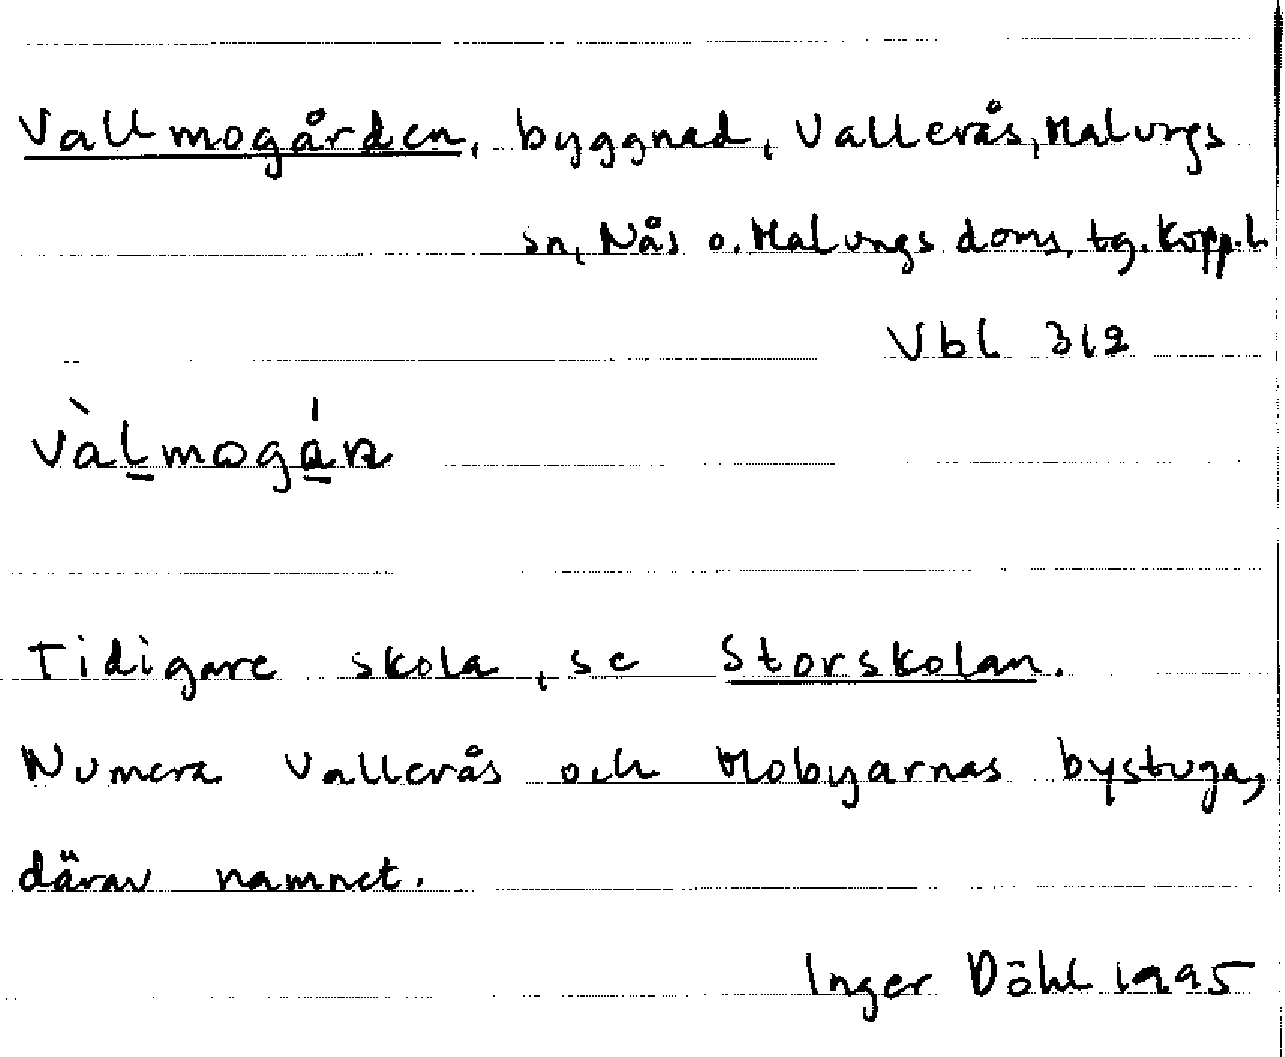 Vallmogården, byggnad, Vallerås, Malungs
sn, Nås o. Malungs doms. tg. Kopp. l.
Vbl 312
Tidigare skola, se Storskolan.
Numera Vallerås och Mobyarnas bystuga,
därav namnet.
Inger Döhl 1995